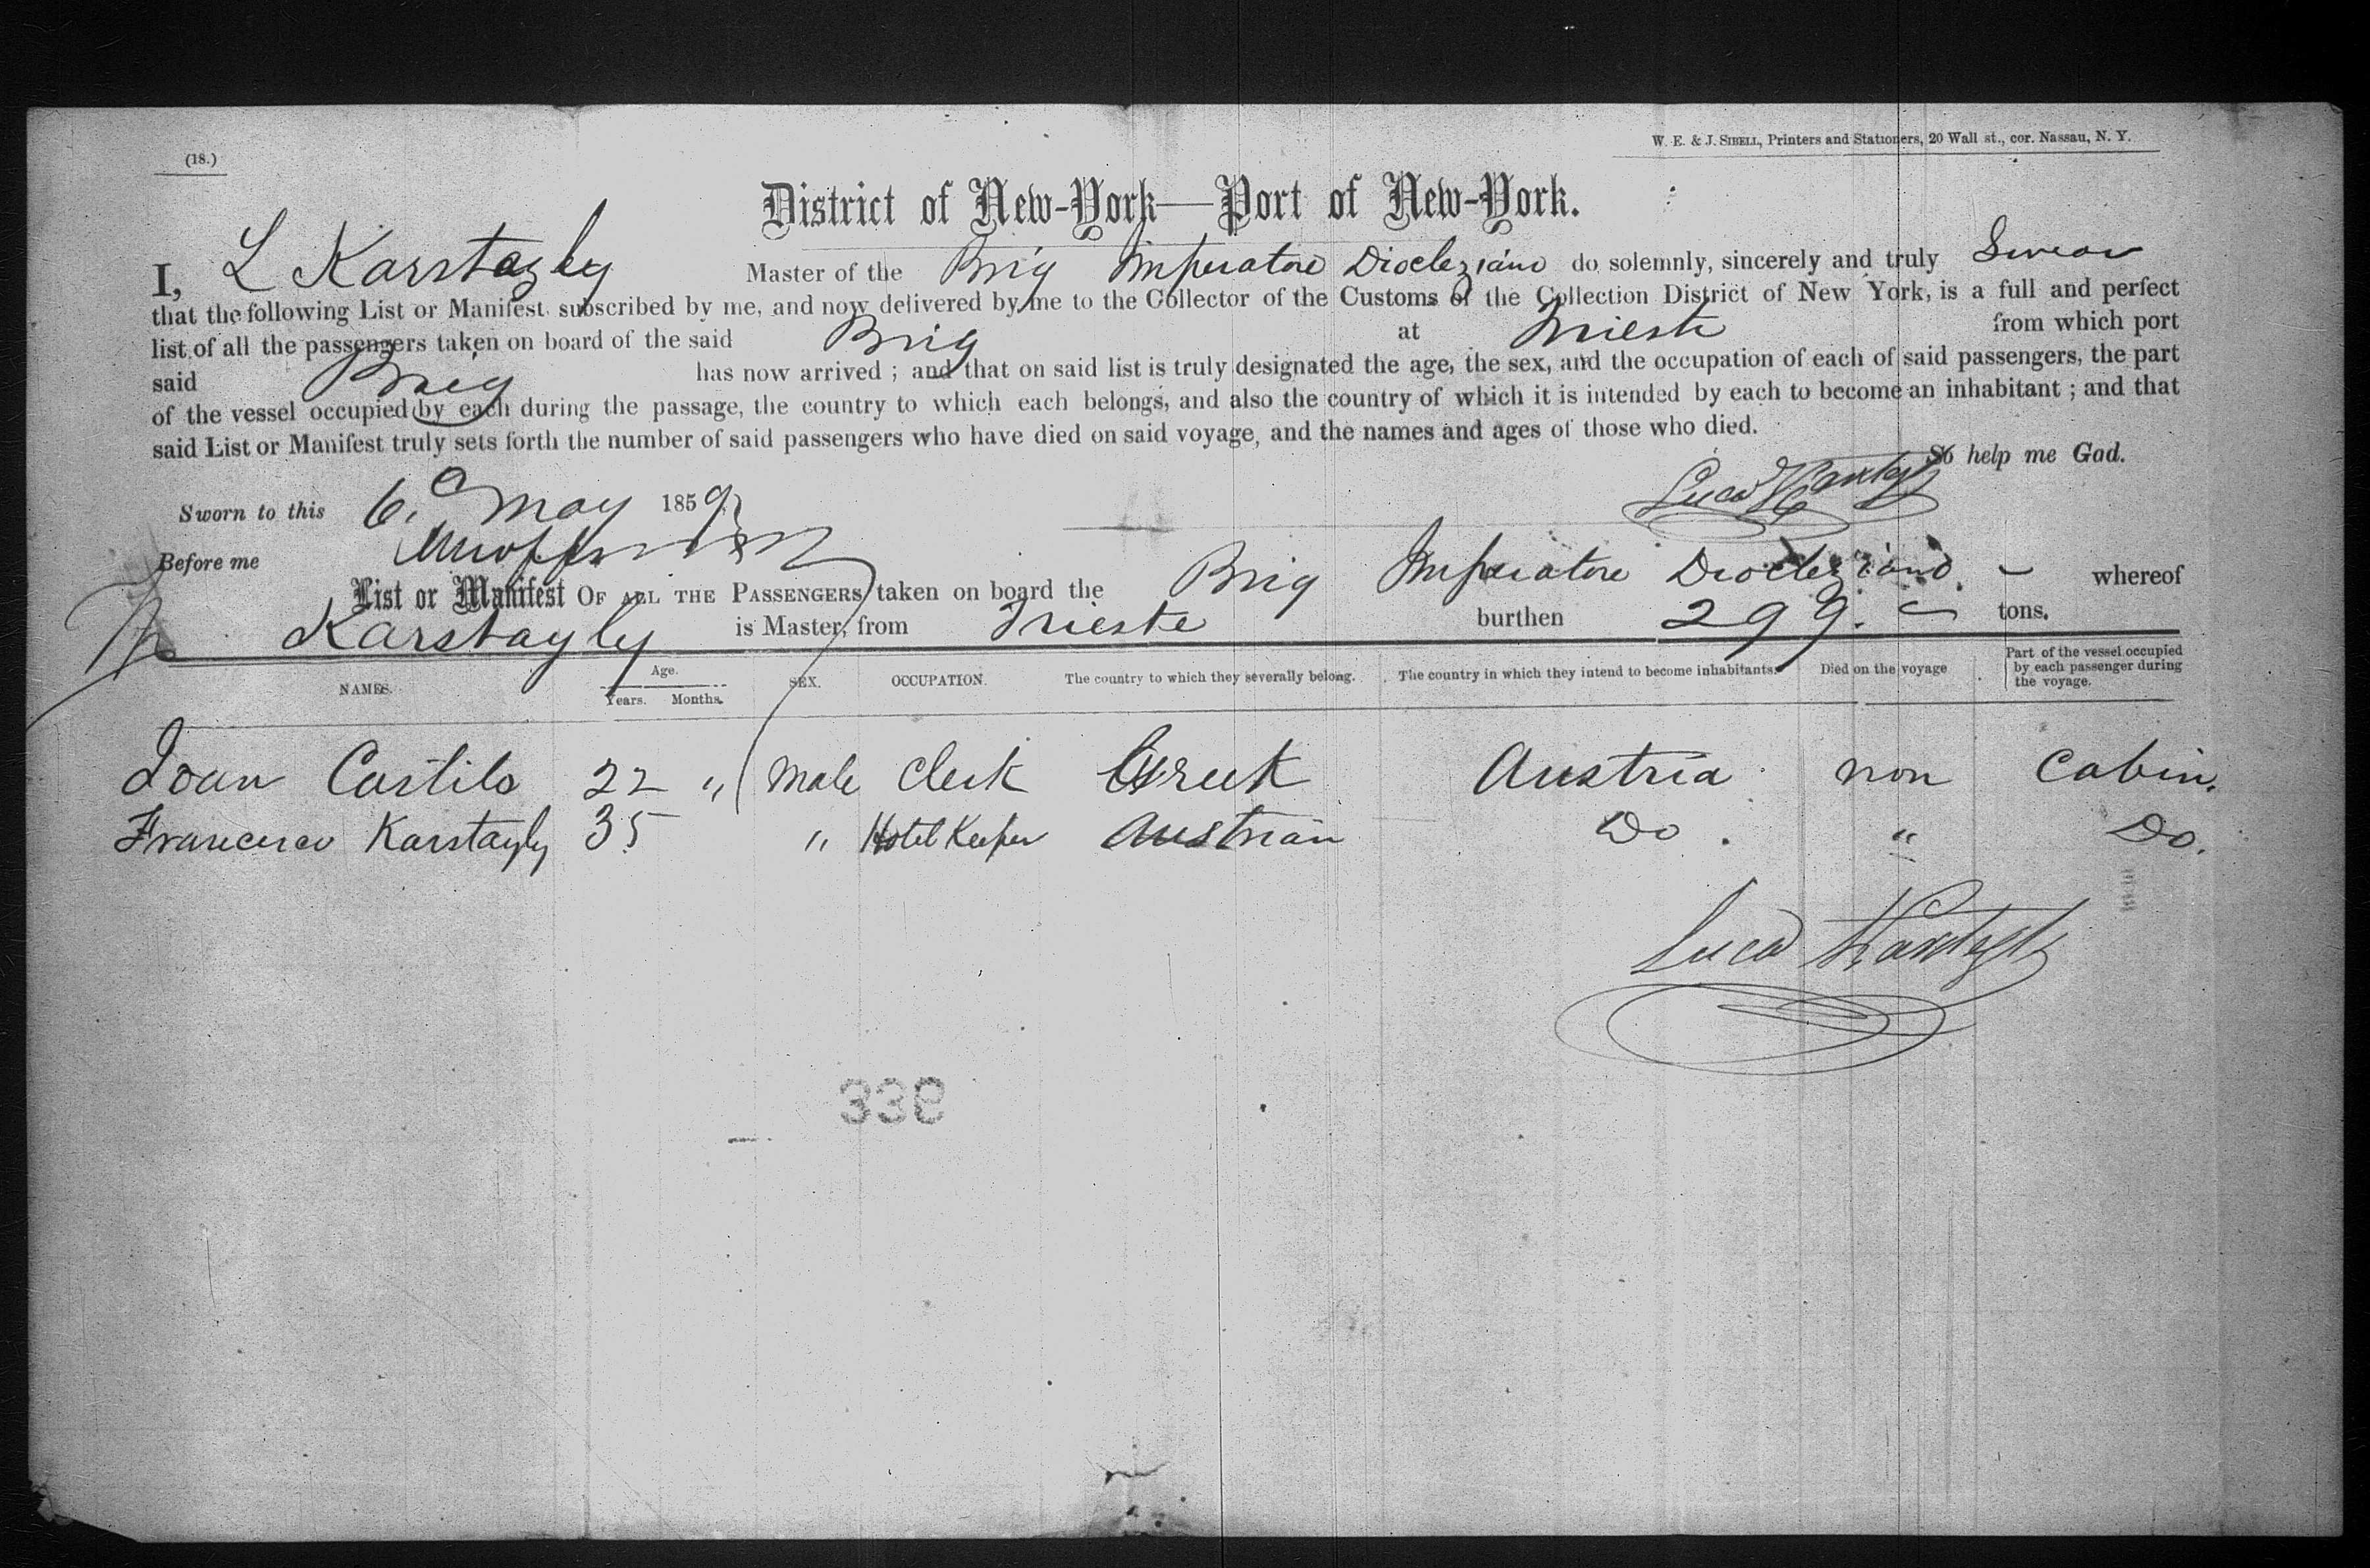 (18.)
W. E. & J. SIBELL, Printers and Stationers, 20 Wall st., cor. Nassau, N. Y.
District of New-York—Port of New-York.
I, L Karstayly Master of the Brig Imperatore Diocleziano do solemnly, sincerely and truly Swear
that the following List or Manifest, subscribed by me, and now delivered by me to the Collector of the Customs of the Collection District of New York, is a full and perfect
list of all the passengers taken on board of the said Brig at Trieste from which port
said Brig has now arrived ; and that on said list is truly designated the age, the sex, and the occupation of each of said passengers, the part
of the vessel occupied by each during the passage, the country to which each belongs, and also the country of which it is intended by each to become an inhabitant ; and that
said List or Manifest truly sets forth the number of said passengers who have died on said voyage, and the names and ages of those who died.
So help me God.
Sworn to this 6. May 1859 Luca
Before me
List or Manifest OF ALL THE PASSENGERS taken on board the Brig Imperatore Diocleziano whereof
Karstayly is Master, from Trieste burthen 299. tons.
NAMES. Age. Years. Months. SEX. OCCUPATION. The country to which they severally belong. The country in which they intend to become inhabitants. Died on the voyage Part of the vessel occupied by each passenger during the voyage.
Ioan Castilo 22 " Male Clerk Greek Austria non Cabin.
Francesco Karstayly 35 " Hotel Keeper Austrian Do. " Do.
Luca
339